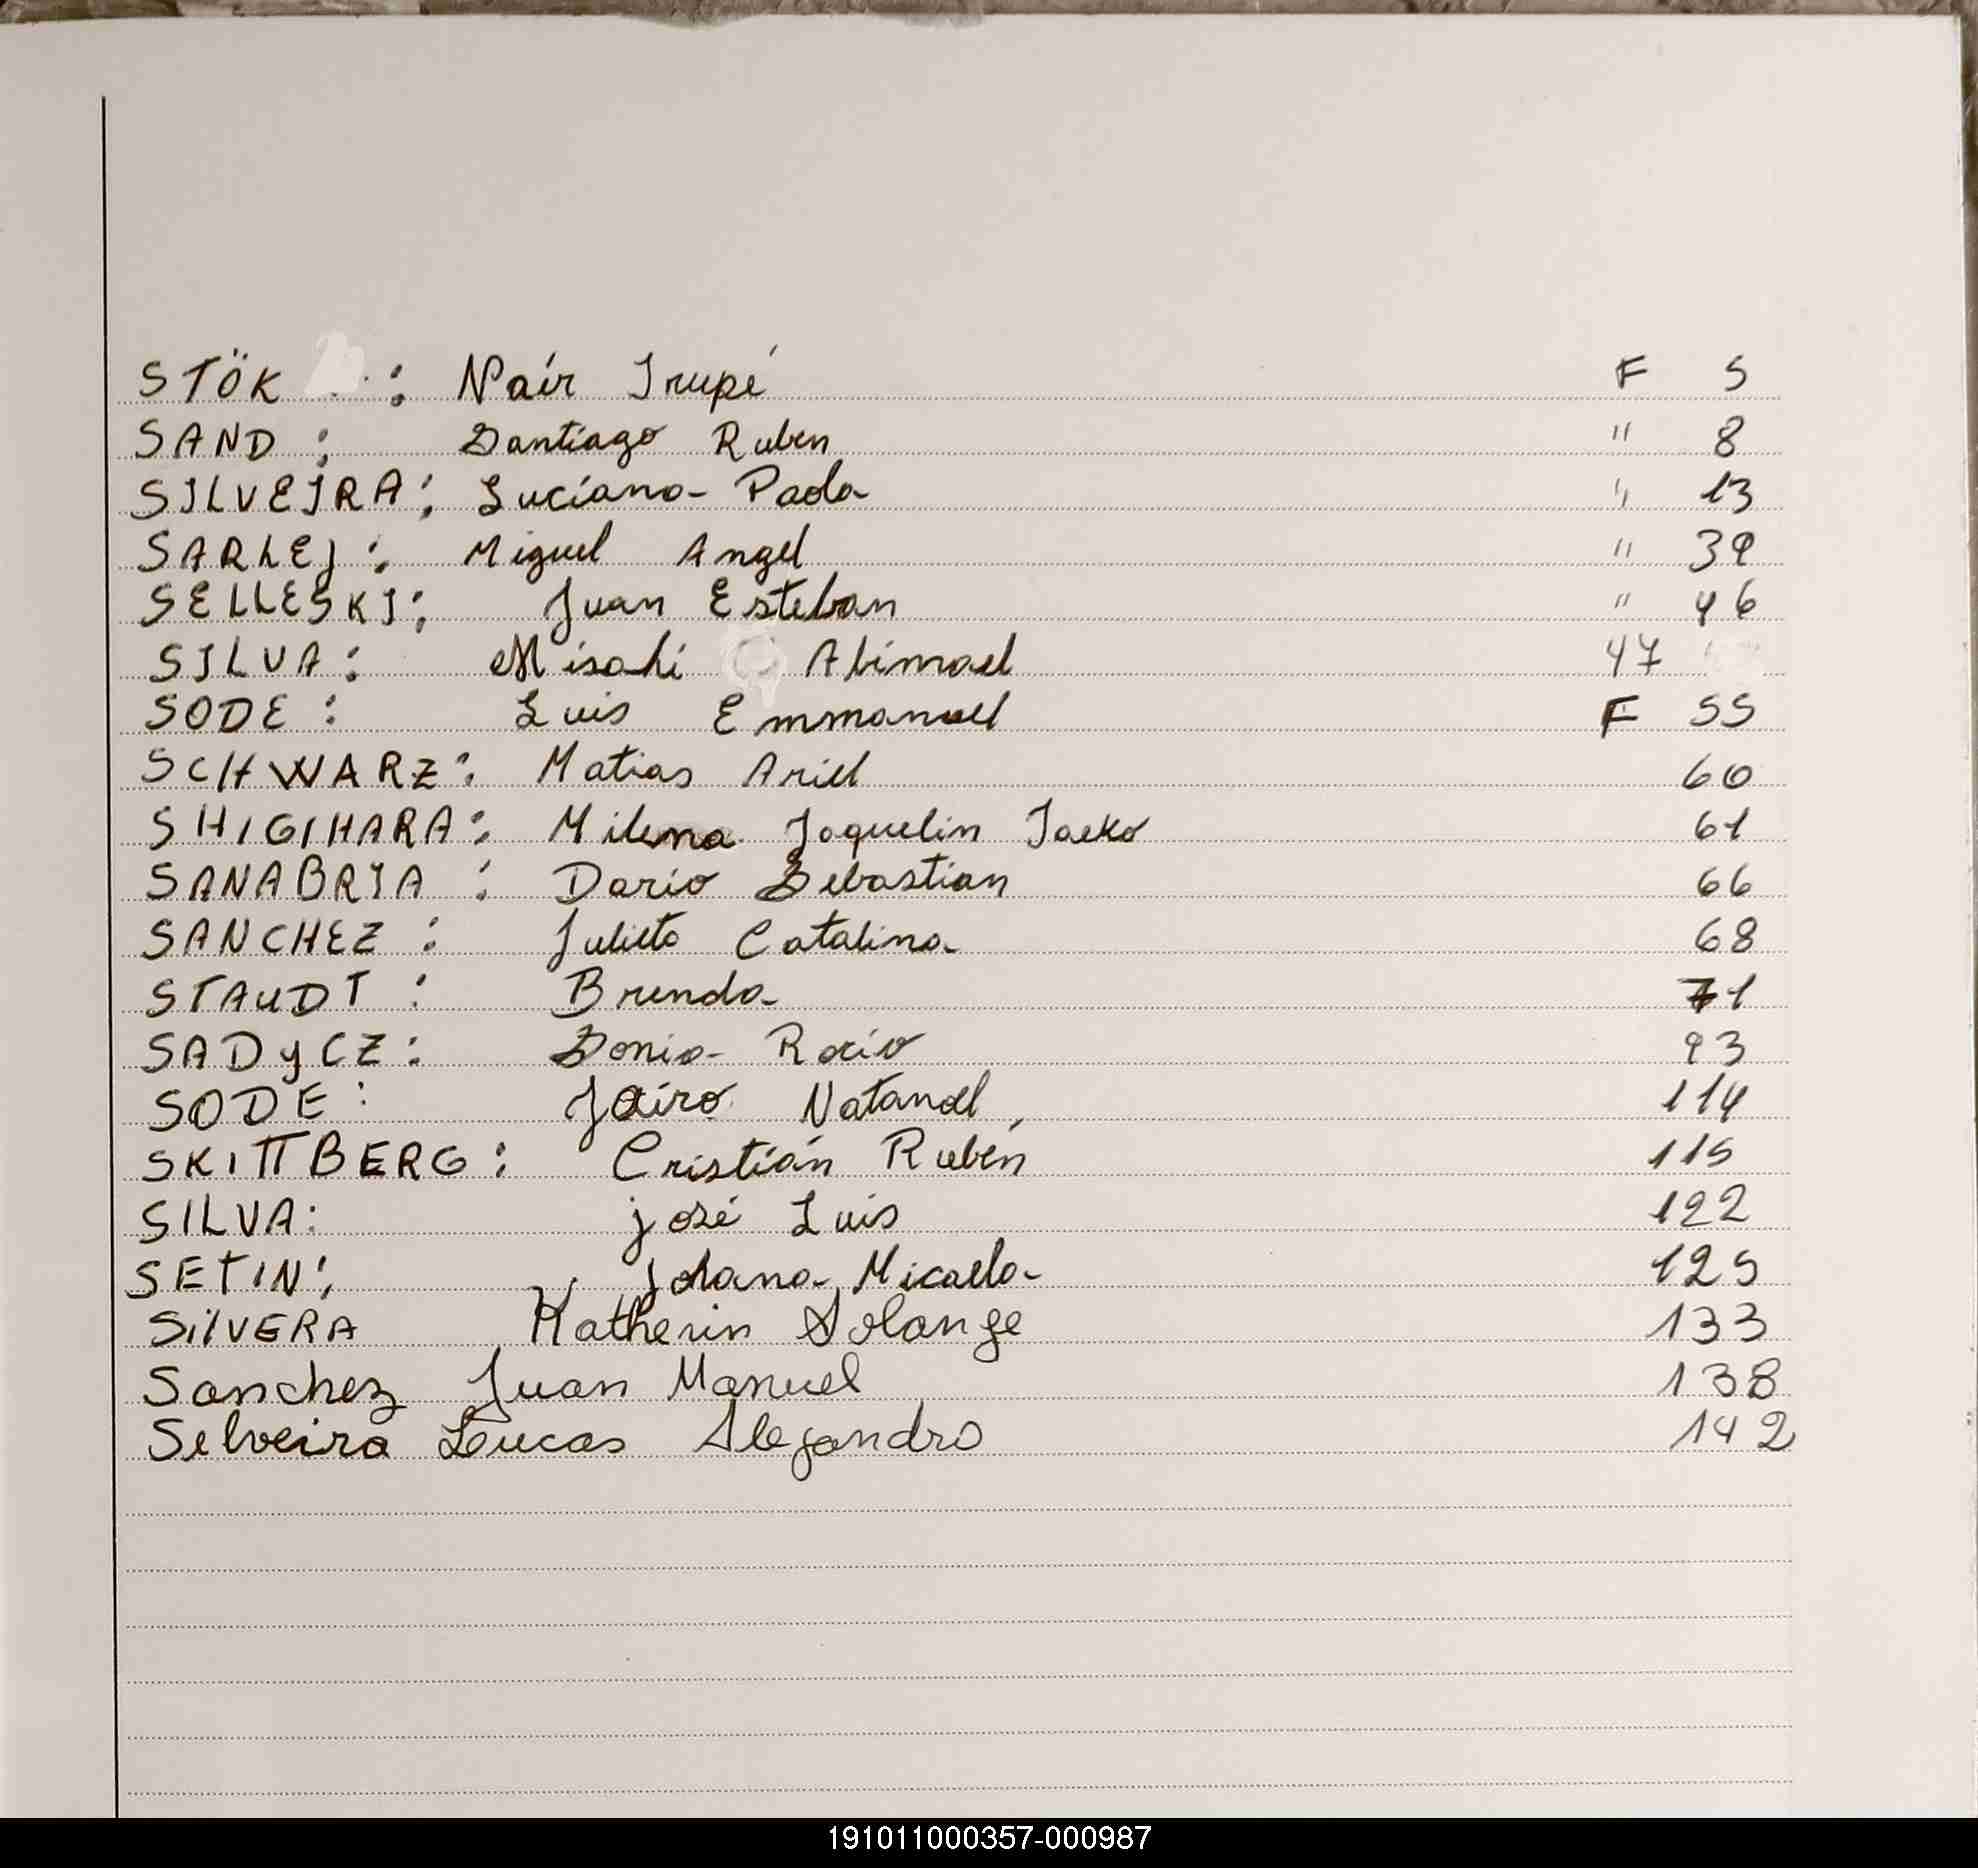 STÖK : Naír Irupé F 5
SAND : Santiago Ruben " 8
SILVEIRA : Luciana Paola " 13
SARLEJ : Miguel Angel " 39
SELLESKI : Juan Esteban " 46
SILVA : Misahi Abimael 47
SODE : Luis Emmanuel F 55
SCHWARZ : Matias Ariel 60
SHIGIHARA : Milena Jaquelin Taeko 61
SANABRIA : Dario Sebastian 66
SANCHEZ : Julieta Catalina 68
STAUDT : Brenda 71
SADyCZ : Sonia Rocío 93
SODE : Jairo Natanael 114
SKITTBERG : Cristián Rubén 115
SILVA : josé Luis 122
SETIN : Johana Micaela 125
SilVERA Katherin Solange 133
Sanchez Juan Manuel 138
Selveira Lucas Alejandro 142
191011000357-000987